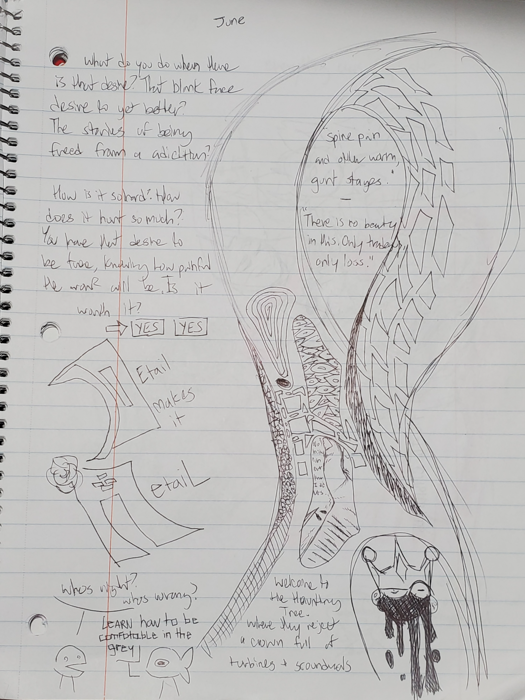 June
what do you do when there
is that desire? That blank face
desire to get better?
The stories of being
freed from a adicttion?
How is it so hard? How
does it hurt so much?
You have that desire to
be free, knowing how painful
the work will be, Is it
worth it?
YES YES
Spine pain
and older warm
stages."
"There is no beauty
in this. Only
only loss."
Etail
makes
it
etaiL
who's right?
who's wrong?
LEARN how to be
comfotable in the
grey
welcome to
the Haunting
Tree.
where they reject
a crown full of
turbines + scoundrels